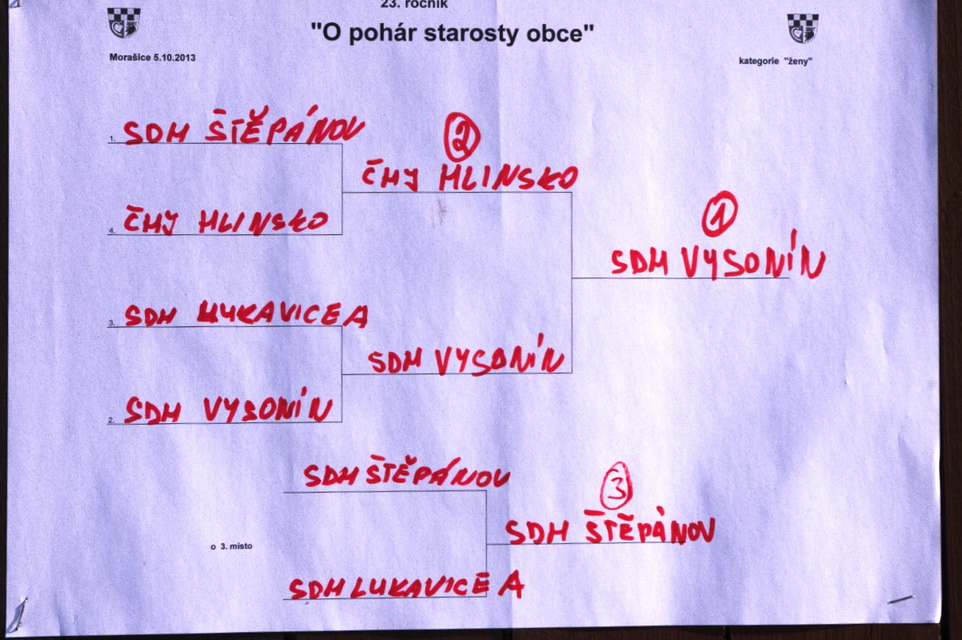 23. ročník
"O pohár starosty obce"
Morašice 5.10.2013
kategorie "ženy"
1. SDH ŠTĚPÁNOV
2
ČMY HLINSKO
4. ČMY HLINSKO
1
SDH VYSONÍN
3. SDH LUKAVICE A
SDH VYSONÍN
2. SDH VYSONÍN
SDH ŠTĚPÁNOV
3
SDH ŠTĚPÁNOV
o 3. místo
SDH LUKAVICE A